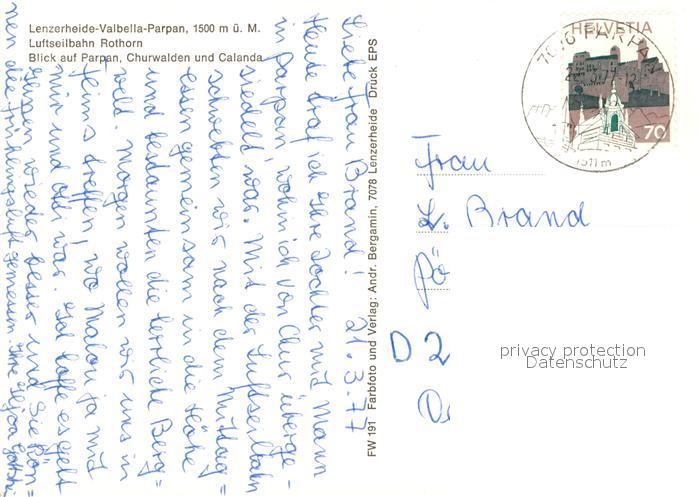 Lenzerheide-Valbella-Parpan, 1500 m ü. M.
Luftseilbahn Rothorn
Blick auf Parpan, Churwalden und Calanda
21.3.77
Liebe Frau Brand!
Heute traf ich Ihre Tochter mit Mann
in Parpan, wohin ich von Chur überge-
siedelt war. Mit der Luftseilbahn
schwebten wir nach dem Mittag-
essen gemeinsam in die Höhe
und bestaunten die herrliche Berg-
welt. Morgen wollen wir uns in
treffen, wo Malou ja mit
mir und oft war. Ich hoffe es geht
Ihnen wieder besser und Sie kön-
nen die Frühlingsluft geniessen. Ihre
FW 191 Farbfoto und Verlag: Andr. Bergamin, 7078 Lenzerheide Druck EPS
HELVETIA
70
7076 PARPAN
1511 m
Frau
L. Brand
D 2
privacy protection
Datenschutz